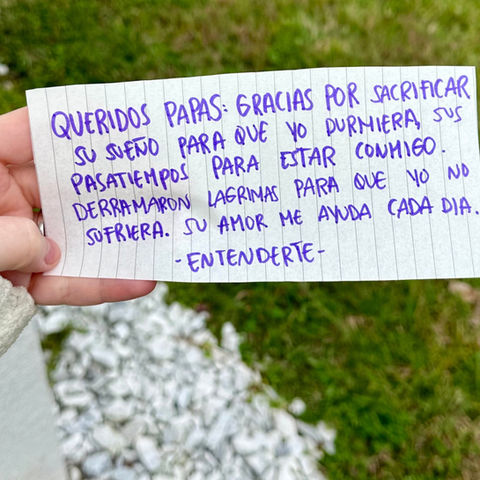 QUERIDOS PAPAS: GRACIAS POR SACRIFICAR
SU SUEÑO PARA QUE YO DURMIERA, SUS
PASATIEMPOS PARA ESTAR CONMIGO.
DERRAMARON LAGRIMAS PARA QUE YO NO
SUFRIERA. SU AMOR ME AYUDA CADA DIA.
-ENTENDERTE-